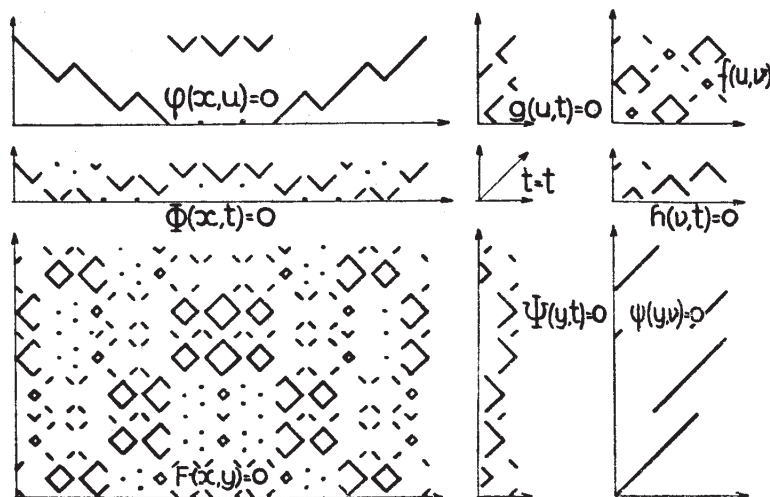 φ(x,u)=0
g(u,t)=0
f(u,ν)
Φ(x,t)=0
t=t
h(ν,t)=0
Ψ(y,t)=0
ψ(y,ν)=0
F(x,y)=0